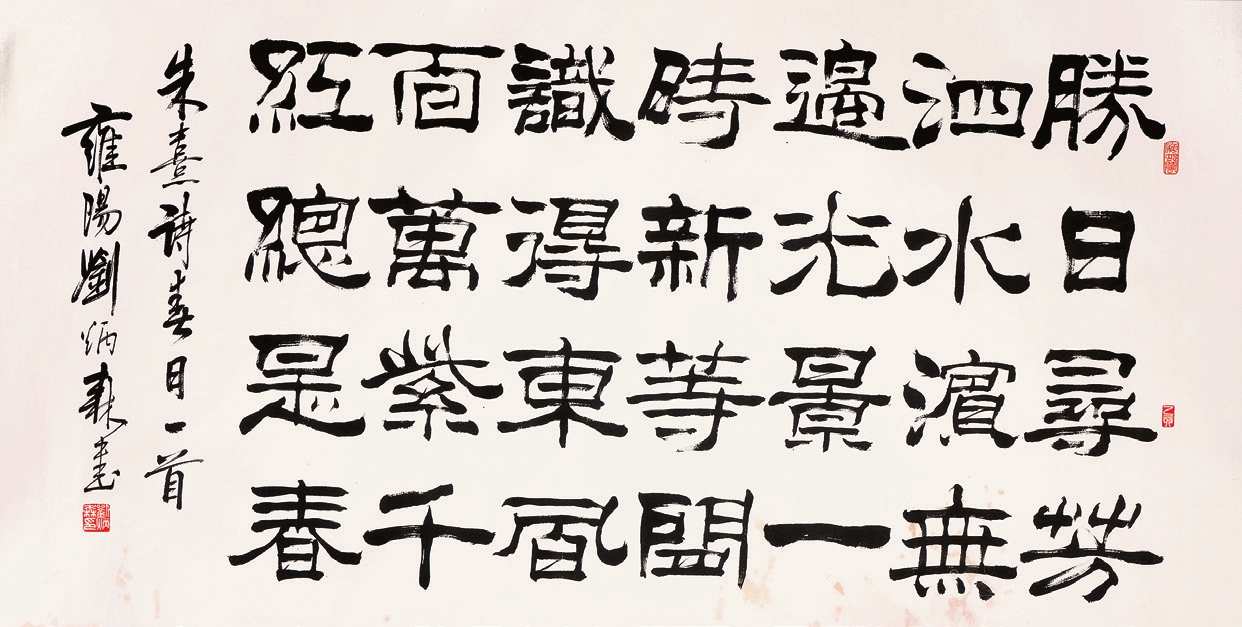 勝日尋芳
泗水濱無
邊光景一
時新等閒
識得東風
面萬紫千
紅總是春
朱熹詩春日一首
雍陽劉炳森書
劉炳森印